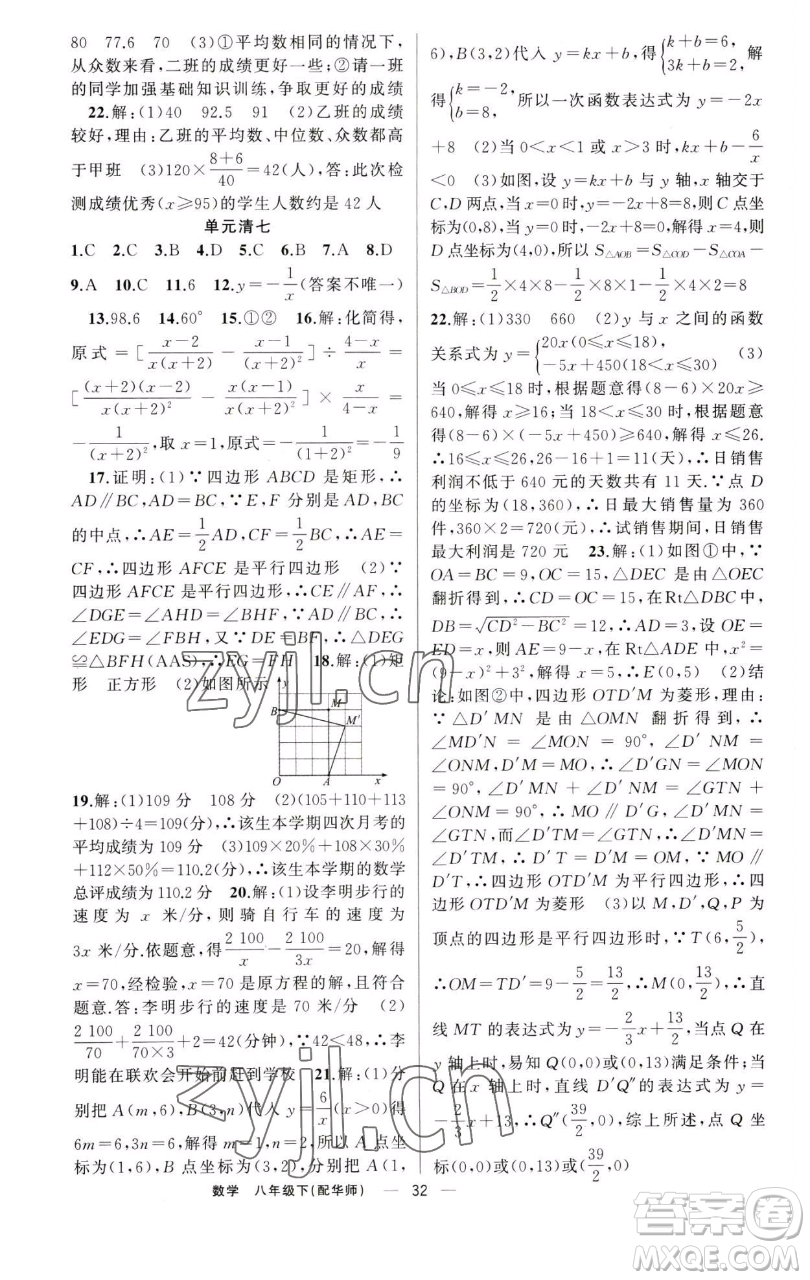 80 77.6 70 (3)①平均数相同的情况下,
从众数来看,二班的成绩更好一些;②请一班
的同学加强基础知识训练,争取更好的成绩
22.解:(1)40 92.5 91 (2)乙班的成绩
较好,理由:乙班的平均数、中位数、众数都高
于甲班 (3)120×\frac{8+6}{40}=42(人),答:此次检
测成绩优秀(x≥95)的学生人数约是 42 人
单元清七
1.C 2.C 3.B 4.D 5.C 6.B 7.A 8.D
9.A 10.C 11.6 12.y=-\frac{1}{x}(答案不唯一)
13.98.6 14.60° 15.①② 16.解:化简得,
原式=[\frac{x-2}{x(x+2)}-\frac{x-1}{x(x+2)^2}]÷\frac{4-x}{x}=
[\frac{(x+2)(x-2)}{x(x+2)^2}-\frac{x(x-1)}{x(x+2)^2}]×\frac{x}{4-x}=
-\frac{1}{(x+2)^2},取 x=1,原式=-\frac{1}{(1+2)^2}=-\frac{1}{9}
17.证明:(1)∵四边形 ABCD 是矩形,∴
AD∥BC,AD=BC,∵E,F 分别是 AD,BC
的中点,∴AE=\frac{1}{2}AD,CF=\frac{1}{2}BC,∴AE=
CF,∴四边形 AFCE 是平行四边形 (2)∵
四边形 AFCE 是平行四边形,∴CE∥AF,∴
∠DGE=∠AHD=∠BHF,∵AD∥BC,∴
∠EDG=∠FBH,又∵DE=BF,∴△DEG
≌△BFH(AAS),∴EG=FH 18.解:(1)矩
形 正方形 (2)如图所示
y
B M
M′
O A x
19.解:(1)109分 108分 (2)(105+110+113
+108)÷4=109(分),∴该生本学期四次月考的
平均成绩为 109 分 (3)109×20%+108×30%
+112×50%=110.2(分),∴该生本学期的数学
总评成绩为 110.2 分 20.解:(1)设李明步行的
速度为 x 米/分,则骑自行车的速度为
3x 米/分,依题意,得\frac{2 100}{x}-\frac{2 100}{3x}=20,解得
x=70,经检验,x=70 是原方程的解,且符合
题意.答:李明步行的速度是 70 米/分 (2)
\frac{2 100}{70}+\frac{2 100}{70×3}+2=42(分钟),∵42<48,∴李
明能在联欢会开始前赶到学校 21.解:(1)分
别把 A(m,6),B(3,n)代入 y=\frac{6}{x}(x>0)得
6m=6,3n=6,解得 m=1,n=2,所以 A 点坐
标为(1,6),B 点坐标为(3,2),分别把 A(1,
6),B(3,2)代入 y=kx+b,得{k+b=6, 3k+b=2, 解
得{k=-2, b=8, 所以一次函数表达式为 y=-2x
+8 (2)当 0<x<1 或 x>3 时,kx+b-\frac{6}{x}
<0 (3)如图,设 y=kx+b 与 y 轴,x 轴交于
C,D 两点,当 x=0 时,y=-2x+8=8,则 C
点坐标为(0,8),当 y=0 时,-2x+8=0,解得 x=4,则
D 点坐标为(4,0),所以 S△AOB=S△COD-S△COA-
S△BOD=\frac{1}{2}×4×8-\frac{1}{2}×8×1-\frac{1}{2}×4×2=8
22.解:(1)330 660 (2)y 与 x 之间的函数
关系式为 y={20x(0≤x≤18) -5x+450(18<x≤30) (3)
当 0≤x≤18 时,根据题意得(8-6)×20x≥
640,解得 x≥16;当 18<x≤30 时,根据题意
得(8-6)×(-5x+450)≥640,解得 x≤26.
∴16≤x≤26,26-16+1=11(天),∴日销售
利润不低于 640 元的天数共有 11 天.∵点 D
的坐标为(18,360),∴日最大销售量为 360
件,360×2=720(元),∴试销售期间,日销售
最大利润是 720 元 23.解:(1)如图①中,∵
OA=BC=9,OC=15,△DEC 是由△OEC
翻折得到,∴CD=OC=15,在Rt△DBC 中,
DB=\sqrt{CD²-BC²}=12,∴AD=3,设 OE=
ED=x,则 AE=9-x,在 Rt△ADE 中,x²=
(9-x)²+3²,解得 x=5,∴E(0,5) (2)结
论:如图②中,四边形 OTD′M 为菱形,理由:
∵△D′MN 是由△OMN 翻折得到,
∴∠MD′N=∠MON=90°,∠D′NM=
∠ONM,D′M=OM,∴∠D′GN=∠MON
=90°,∠D′MN=∠OMN,∠OMN+∠ONM
=90°,∴MO∥D′G,∴∠OMN=
∠GTN,而∠D′TM=∠GTN,∴∠D′MT=
∠D′TM,∴D′T=D′M,∴OM=D′T,MO∥
D′T,∴四边形 OTD′M 为平行四边形,∴四
边形 OTD′M 为菱形 (3)以 M,D′,Q,P 为
顶点的四边形是平行四边形时,∵T(6,\frac{5}{2}),
∴OM=TD′=9-\frac{5}{2}=\frac{13}{2},∴M(0,\frac{13}{2}),∴直
线 MT 的表达式为 y=-\frac{2}{3}x+\frac{13}{2},当点 Q 在
y 轴上时,易知 Q(0,0)或(0,13)满足条件;当
Q 在 x 轴上时,直线 D′Q″的表达式为 y=
-\frac{2}{3}x+13,∴Q″(\frac{39}{2},0),综上所述,点 Q 坐
标为(0,0)或(0,13)或(\frac{39}{2},0)
数学 八年级下(配华师) — 32 —
zyjl.cn
zyjl.cn
答案圈
MXQE.COM